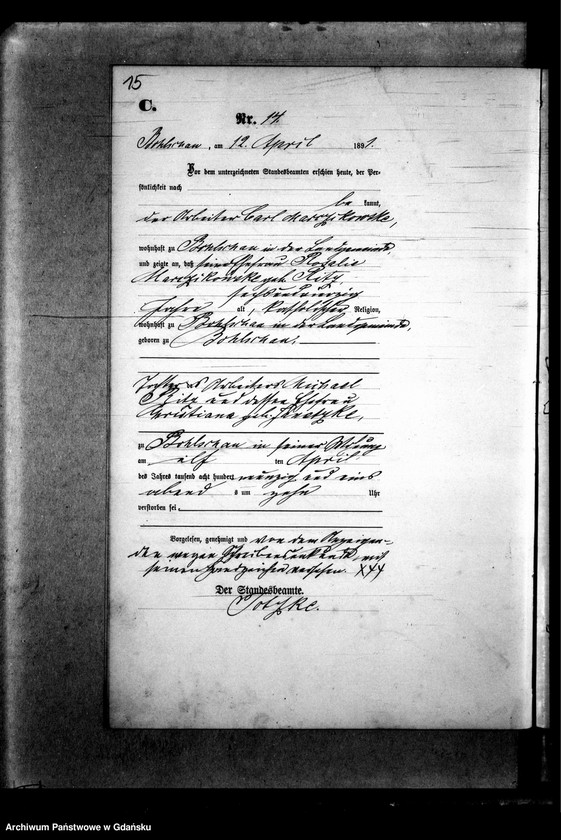 15
C.
Nr. 14.
Bohlschau, am 12. April 1891.
Vor dem unterzeichneten Standesbeamten erschien heute, der Per-
sönlichkeit nach
be kannt,
der Arbeiter Carl Marczikowske,
wohnhaft zu Bohlschau in der Landgemeinde,
und zeigte an, daß seine Ehefrau Rosalie
Marczikowske geb. Ritz,
sechsundvierzig
Jahre alt, katholischer Religion,
wohnhaft zu Bohlschau in der Landgemeinde,
geboren zu Bohlschau,
Tochter des Arbeiters Michael
Ritz und dessen Ehefrau
Christiana geb.
zu Bohlschau in seiner Wohnung
am elf ten April
des Jahres tausend acht hundert neunzig und eins
abend s um zehn Uhr
verstorben sei.
Vorgelesen, genehmigt und von dem Anzeigen-
den wegen Schreibensunkunde mit
seinem Handzeichen versehen. XXX
Der Standesbeamte.